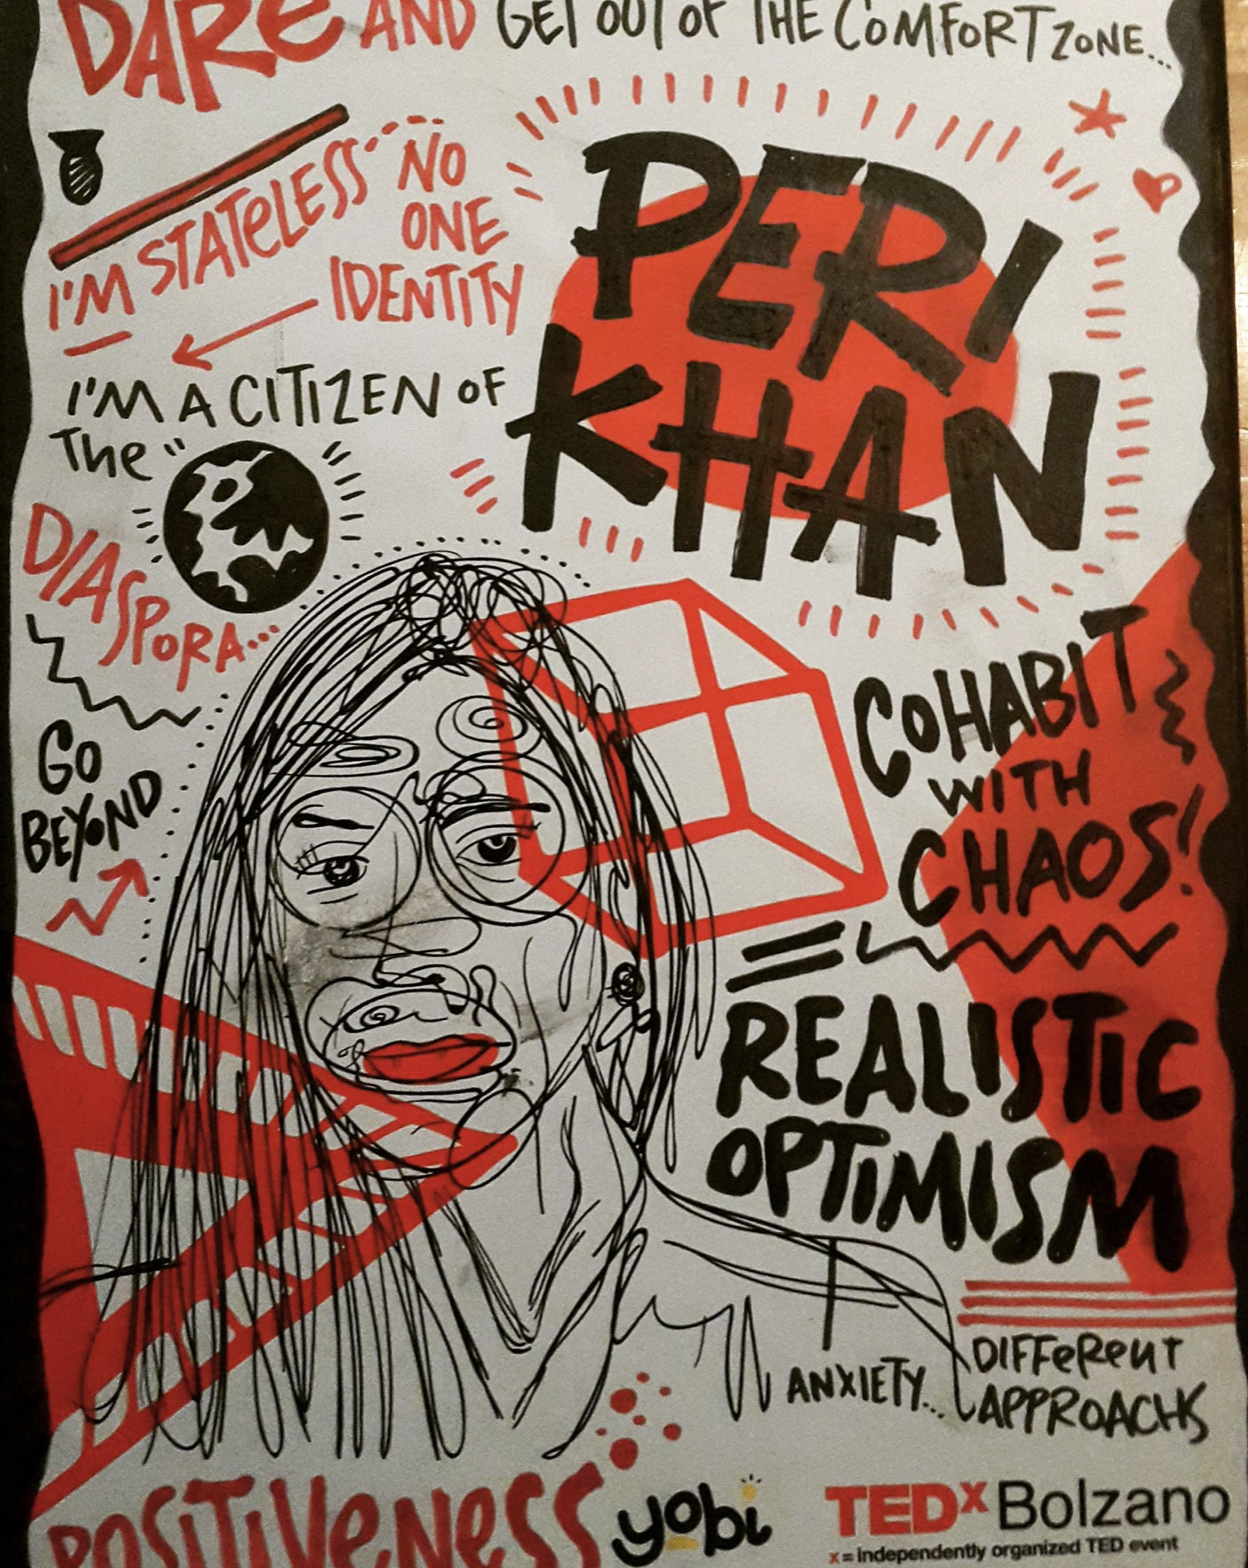 DARE AND GET OUT OF THE COMFORT ZONE...
I'M STATELESS
NO
ONE
IDENTITY
PERI
KHAN
I'M A CITIZEN OF
The "
DIASPORA...
GO
BEYOND
COHABIT
WITH
CHAOS!
REALISTIC
OPTIMISM
ANXIETY...
DIFFERENT
APPROACHS
POSITIVENESS
yobi
TEDx Bolzano
x = independently organized TED event